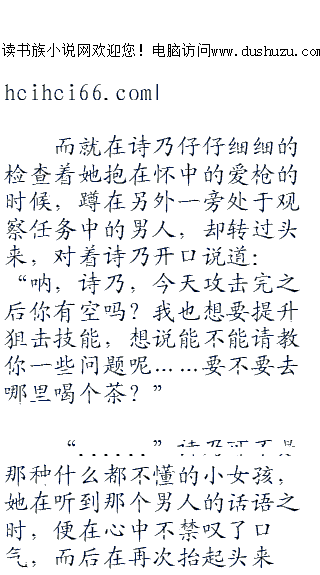 读书族小说网欢迎您！电脑访问www.dushuzu.com
hcihci66.com|
而就在诗乃仔仔细细的
检查着她抱在怀中的爱枪的
时候，蹲在另外一旁处于观
察任务中的男人，却转过头
来，对着诗乃开口说道：
“呐，诗乃，今天攻击完之
后你有空吗？我也想要提升
狙击技能，想说能不能请教
你一些问题呢……要不要去
哪里喝个茶？”
“......”诗乃可不是
那种什么都不懂的小女孩，
她在听到那个男人的话语之
时，便在心中不禁叹了口
气，而后在再次抬起头来